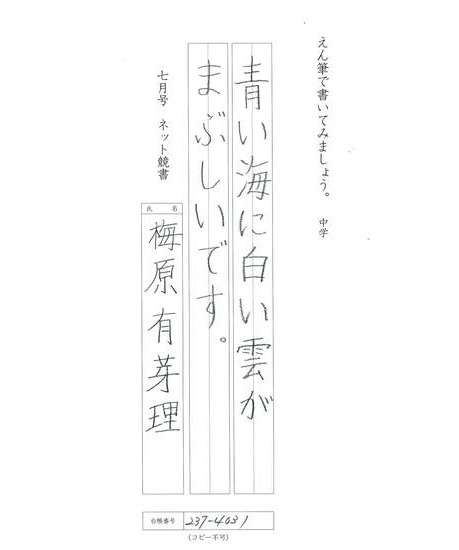 えん筆で書いてみましょう。 中学
青い海に白い雲が
まぶしいです。
七月号 ネット競書
氏名
梅原有芽理
台帳番号 237-4031
(コピー不可)